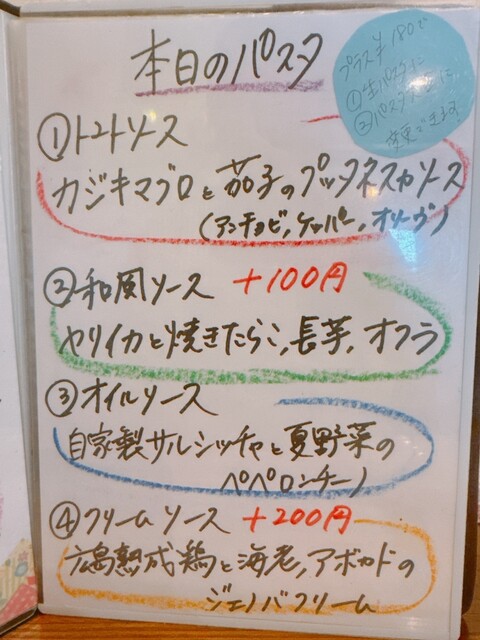 本日のパスタ
プラス¥180で
①生パスタに
②パスタ大盛に
変更できます
①トマトソース
カジキマグロと茄子のプッタネスカソース
(アンチョビ,ケッパー,オリーヴ)
②和風ソース +100円
ヤリイカと焼きたらこ,長芋,オクラ
③オイルソース
自家製サルシッチャと夏野菜の
ペペロンチーノ
④クリームソース +200円
広島熟成鶏と海老,アボカドの
ジェノバクリーム